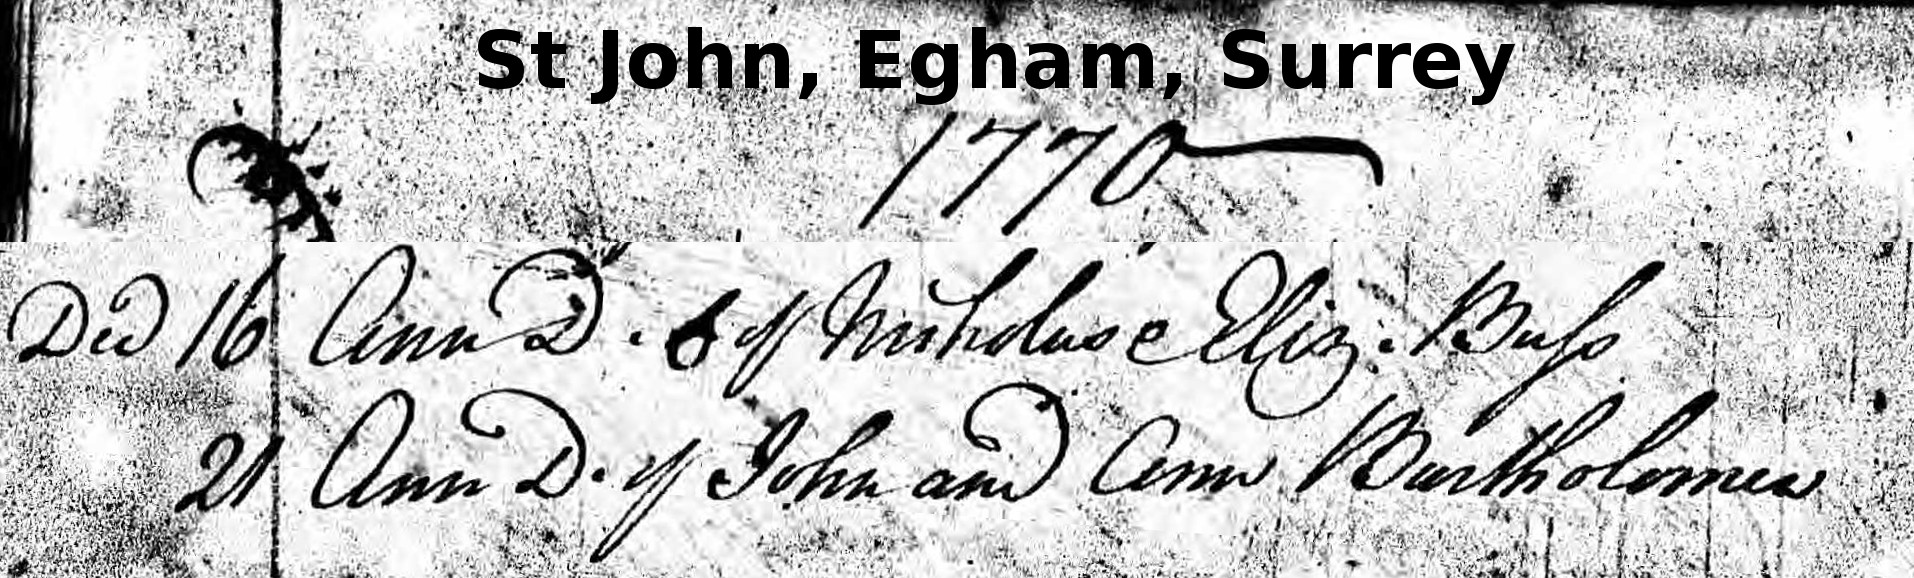 St John, Egham, Surrey
1770
Decd 16 Ann D. of Nicholas & Eliz: Buss
21 Ann D. of John and Ann Bartholomew